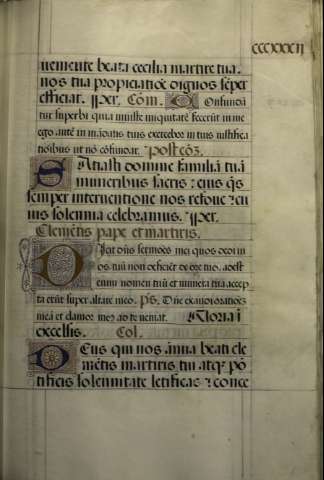 cccxxxij
ueniente beata cecilia martire tua.
nos tua propiciatiõe dignos sẽper
efficiat. ꝑper. Cõm. Onfundã
tur superbi quia iniuste iniquitatẽ fecerũt in me
ego autẽ in mãdatis tuis exercebor in tuis iustifica
tiõibus ut nõ cõfundar. post cõ3.
Atiasti domine familiã tuã
muneribus sacris: eius q̃s
semper interuentione nos refoue: cu
ius solemnia celebramus. ꝑper.
Clemẽtis pape et martiris.
Icit dñs sermões mei quos dedi in
os tuũ non deficiẽt de ore tuo. adest
enim nomen tuũ et munera tua accep
ta erũt super altare meũ. ps. Dñe exaudi oratiões
meã et clamor meus ad te ueniat. Gloria i
excelsis. Col.
Eus qui nos ãnua beati cle
mẽtis martiris tui atq3 põ
tificis solemnitate letificas: conce